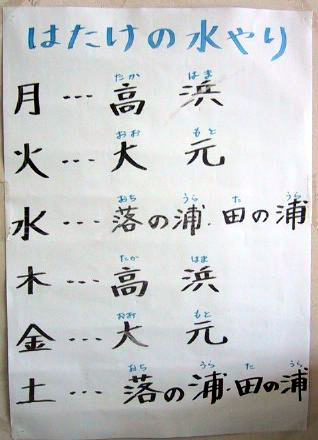 はたけの水やり
たか はま
月…高 浜
おお もと
火…大 元
おち うら た うら
水…落の浦・田の浦
たか はま
木…高 浜
おお もと
金…大 元
おち うら た うら
土…落の浦・田の浦